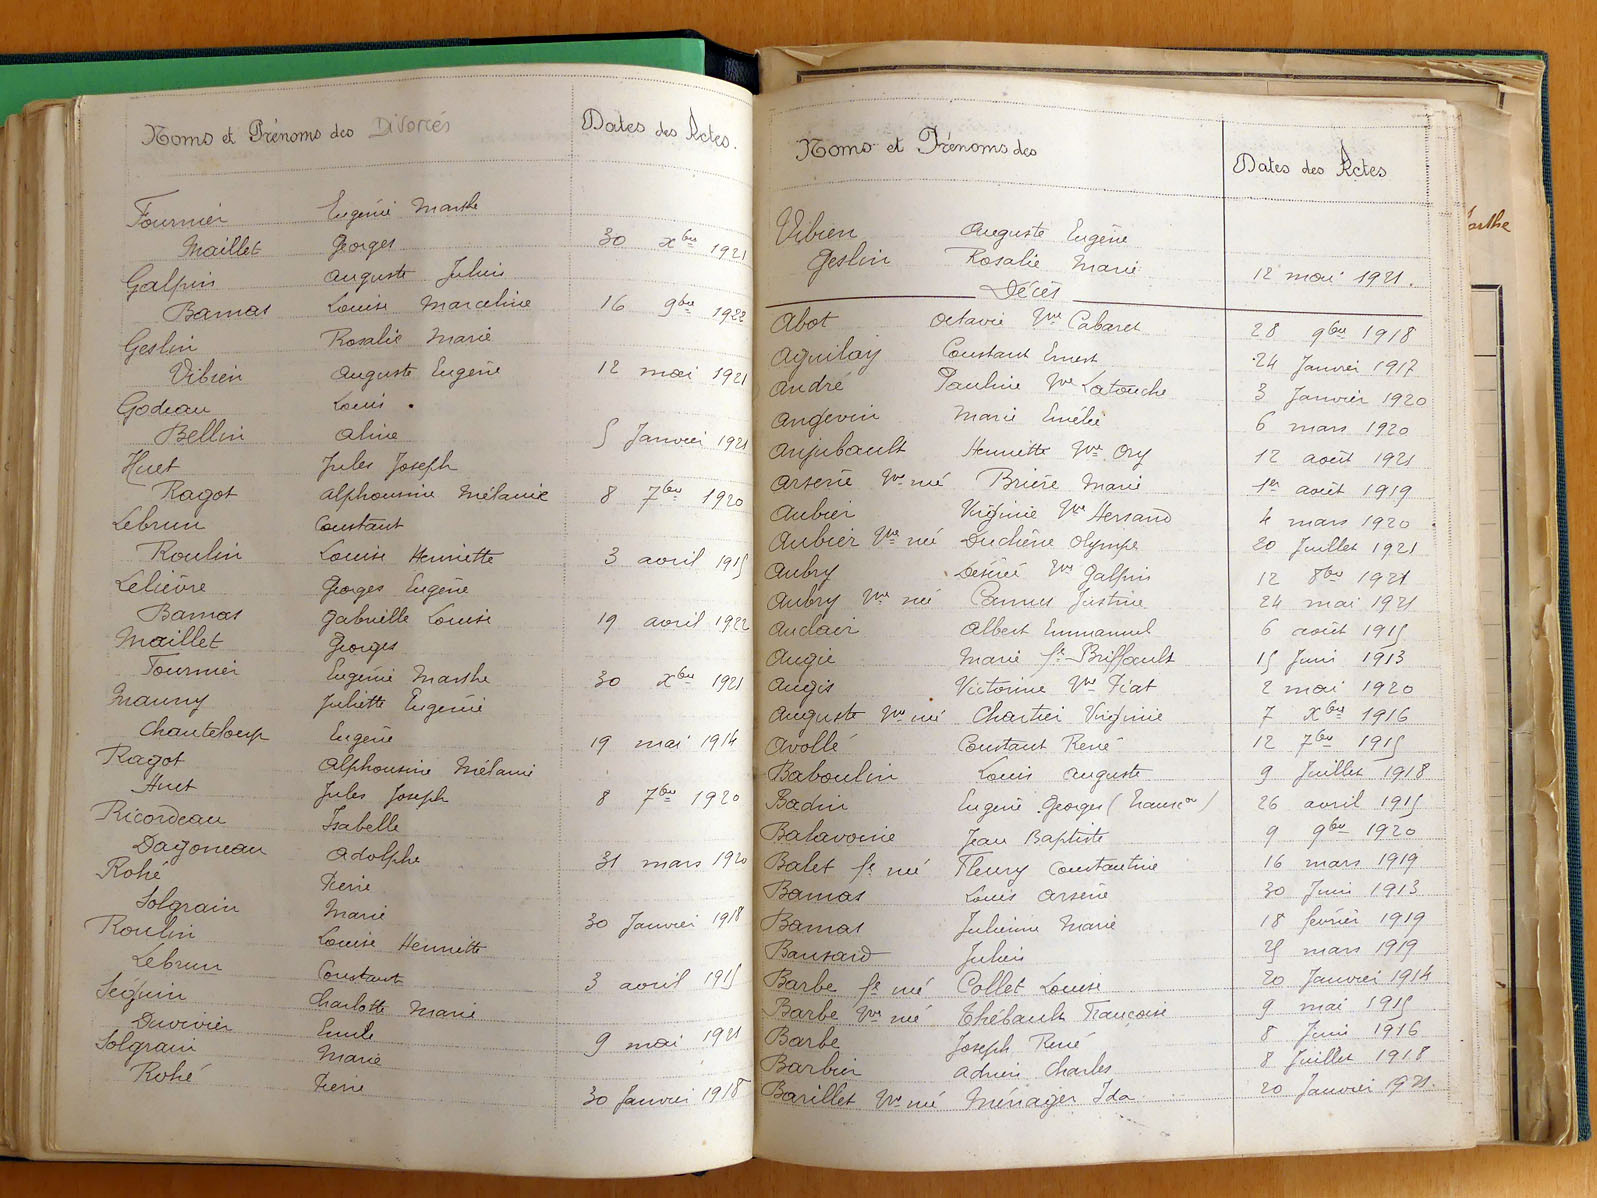 Noms et Prénoms des Divorcés Dates des Actes.
Fournier Eugénie Marthe
Maillet Georges 30 xbre 1921
Galpin Auguste Julien
Bamas Louise Marceline 16 9bre 1922
Geslin Rosalie Marie
Vibien Auguste Eugène 12 mai 1921
Godeau Louis
Bellin Aline 5 Janvier 1921
Huet Jules Joseph
Ragot Alphonsine Mélanie 8 7bre 1920
Lebrun Constant
Roulin Louise Henriette 3 avril 1915
Lelièvre Georges Eugène
Bamas Gabrielle Louise 19 avril 1922
Maillet Georges
Fournier Eugénie Marthe 30 xbre 1921
Mauny Juliette Eugénie
Chanteloup Eugène 19 mai 1914
Ragot Alphonsine Mélanie
Huet Jules Joseph 8 7bre 1920
Ricordeau Isabelle
Dagoneau Adolphe 31 mars 1920
Rohé Pierre
Solgrain Marie 30 Janvier 1918
Roulin Louise Henriette
Lebrun Constant 3 avril 1915
Seguin Charlotte Marie
Duvivier Emile 9 mai 1921
Solgrain Marie
Rohé Pierre 30 Janvier 1918
Noms et Prénoms des Dates des Actes
Vibien Auguste Eugène
Geslin Rosalie Marie 12 mai 1921.
Décès
Abot Octavie Vve Cabaret 28 9bre 1918
Aguilay Constant Ernest 24 Janvier 1917
André Pauline Vve Latouche 3 Janvier 1920
Angevin Marie Emélie 6 mars 1920
Anjubault Henriette Vve Ory 12 août 1921
Arsène Vve née Brière Marie 1er août 1919
Aubier Virginie Vve Hersand 4 mars 1920
Aubier Vve née Duchêne Olympe 20 Juillet 1921
Aubry Désirée Vve Galpin 12 8bre 1921
Aubry Vve née Camus Justine 24 mai 1921
Auclair Albert Emmanuel 6 août 1915
Augie Marie fe Briffault 15 Juin 1913
Augis Victorine Vve Fiat 2 mai 1920
Auguste Vve née Chartier Virginie 7 xbre 1916
Avollé Constant René 12 7bre 1915
Baboulin Louis Auguste 9 Juillet 1918
Badin Eugène Georges 26 avril 1915
Balavoine Jean Baptiste 9 9bre 1920
Balet fe née Fleury Constantine 16 mars 1919
Bamas Louis Arsène 30 Juin 1913
Bamas Julienne Marie 18 février 1919
Bansard Julien 25 mars 1919
Barbe fe née Collet Louise 20 Janvier 1914
Barbe Vve née Thébault Françoise 9 mai 1915
Barbe Joseph René 8 Juin 1916
Barbier Adrien Charles 8 Juillet 1918
Barillet Vve née Ménager Ida 20 Janvier 1921.